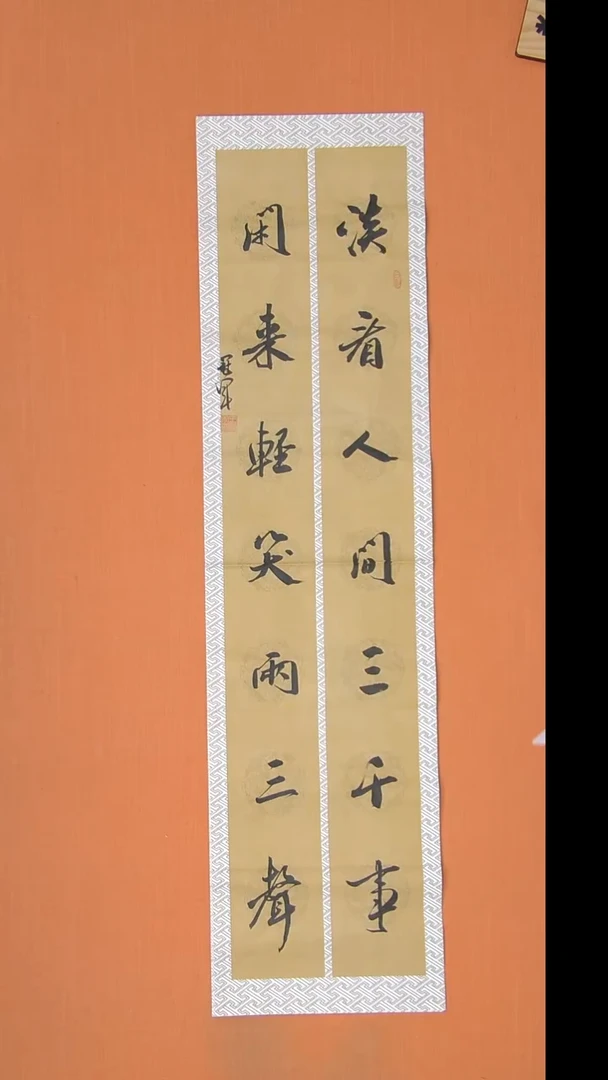 淡看人間三千事
閑来輕笑兩三聲